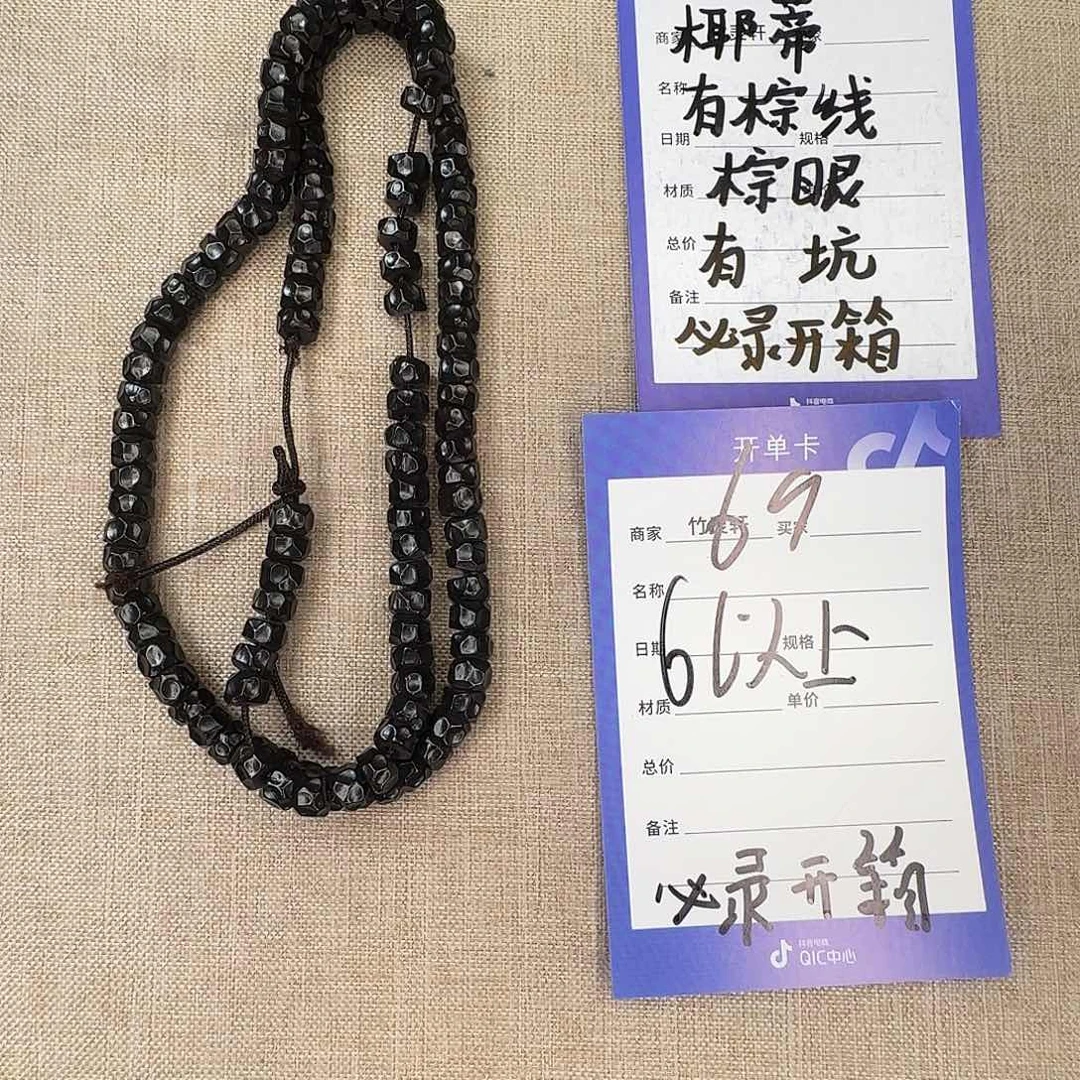 商家 椰蒂
名称
有棕线
日期 规格
材质 棕眼
总价 有 坑
备注
必录开箱
抖音电商
开单卡
69
商家 竹 轩 买家
名称
61以上
日期 规格
材质 单价
总价
备注
必录开箱
抖音电商
QIC中心